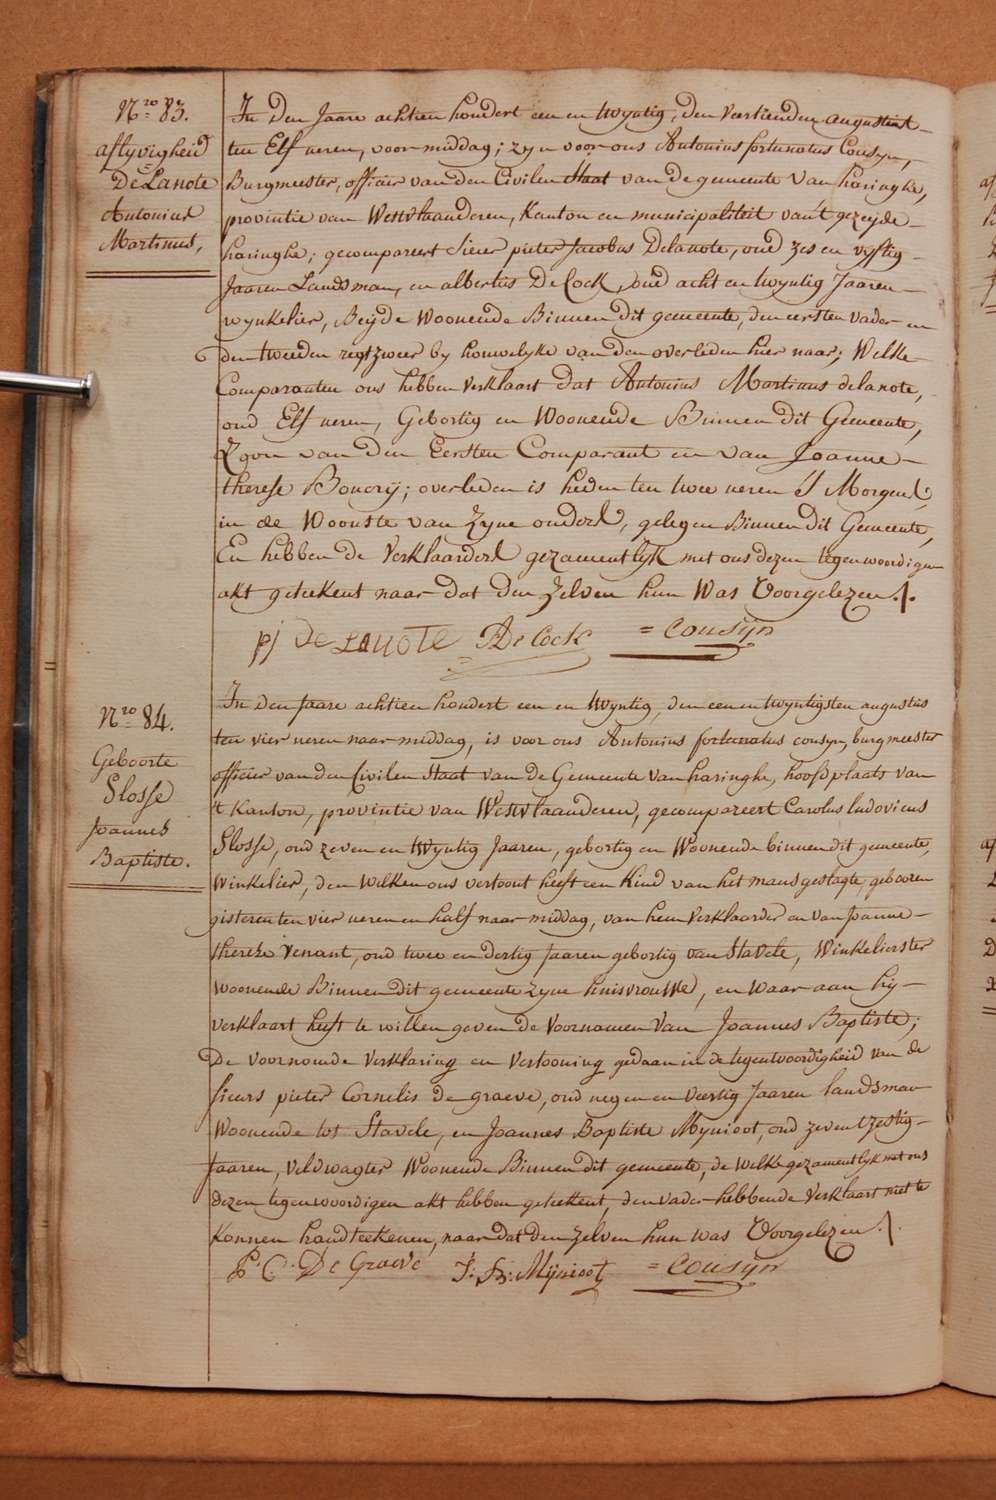 Nro 83.
aflyvigheid
De Lanote
Antonius
Martinus,
In Den Jaare achtien hondert een en twyntig, den veertienden augustus
ten Elf ueren, voor middag; zyn voor ons Antonius fortunatus Cousyn,
Burgmeester, officier van den Civilen Staat van de gemeente van haringhe,
provintie van Westvlaanderen, Kanton en municipaliteit van't gezeyde
haringhe; gecompareert Sieur pieter Jacobus Delanote, oud zes en vyftig
Jaaren Landsman, en albertus De Cock, oud acht en twyntig Jaaren
wynkelier, Beyde Woonende Binnen dit gemeente, den eersten vader en
den tweeden regtzweer by houwelyke van den overleden hier naar; Welke
Comparanten ons hebben Verklaart dat Antonius Martinus delanote,
oud Elf ueren, Gebortig en Woonende Binnen dit Gemeente,
Zoon van den Eersten Comparant en van Joanne
therese Boucry; overleden is heden ten twee ueren S'Morgens,
in de Woonste van Zyne ouders, gelegen Binnen dit Gemeente,
En hebben de Verklaarders gezamentlyk met ons dezen tegenwoordigen
akt geteekent naar dat den Zelven hun Was Voorgelezen ./.
pj De Lanote ADeCock = Cousyn
Nro 84.
Geboorte
Slosse
Joannes
Baptiste.
In den Jaare achtien hondert een en twyntig, den een en twyntigsten augustus
ten vier ueren naar middag, is voor ons Antonius fortunatus cousyn, burgmeester
officier van den Civilen Staat van de Gemeente van haringhe, hoofdplaats van
't Kanton, provintie van Westvlaanderen, gecompareert Carolus ludovicus
Slosse, oud zeven en twyntig Jaaren, gebortig en Woonende binnen dit gemeente,
Winkelier, den Welken ons vertoont heeft een Kind van het mansgeslagte, gebooren
gisteren ten vier ueren en half naar middag, van hem Verklaarder en van Joanne
thereze venant, oud twee en dertig Jaaren gebortig van Stavele, Winkelierster
woonende Binnen dit gemeente zyne huisvrouwe, en waar aan hy
verklaart heeft te willen geven de Voornamen Van Joannes Baptiste;
De voornomde verklaring en vertooning gedaan in de tegentwoordigheid van de
sieurs pieter Cornelis de graeve, oud negen en veertig Jaaren landsman
Woonende tot Stavele, en Joannes Baptiste Mynioot, oud zeven t'zestig
Jaaren, veldwagter Woonende Binnen dit gemeente, de welke gezamentlyk met ons
dezen tegenwoordigen akt hebben geteekent, den vader hebbende Verklaart niet te
Konnen handteekenen, naar dat den Zelven hun was Voorgelezen ./.
P. C. De Graeve J: B: Mynioot = Cousyn